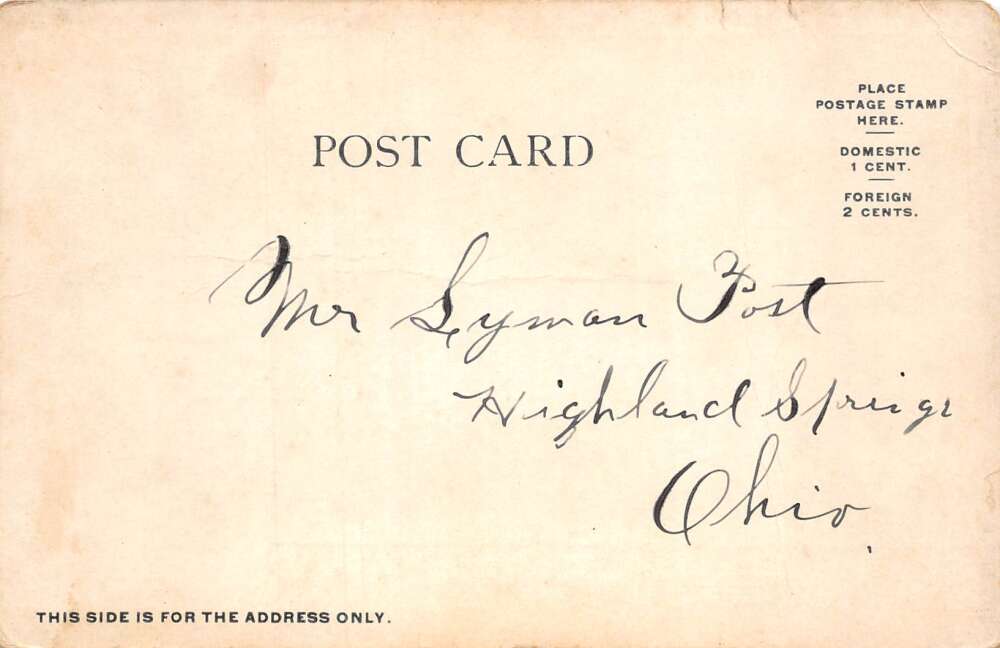 PLACE
POSTAGE STAMP
HERE.
DOMESTIC
1 CENT.
FOREIGN
2 CENTS.
POST CARD
Mr Lyman Post
Highland Springs
Ohio
THIS SIDE IS FOR THE ADDRESS ONLY.